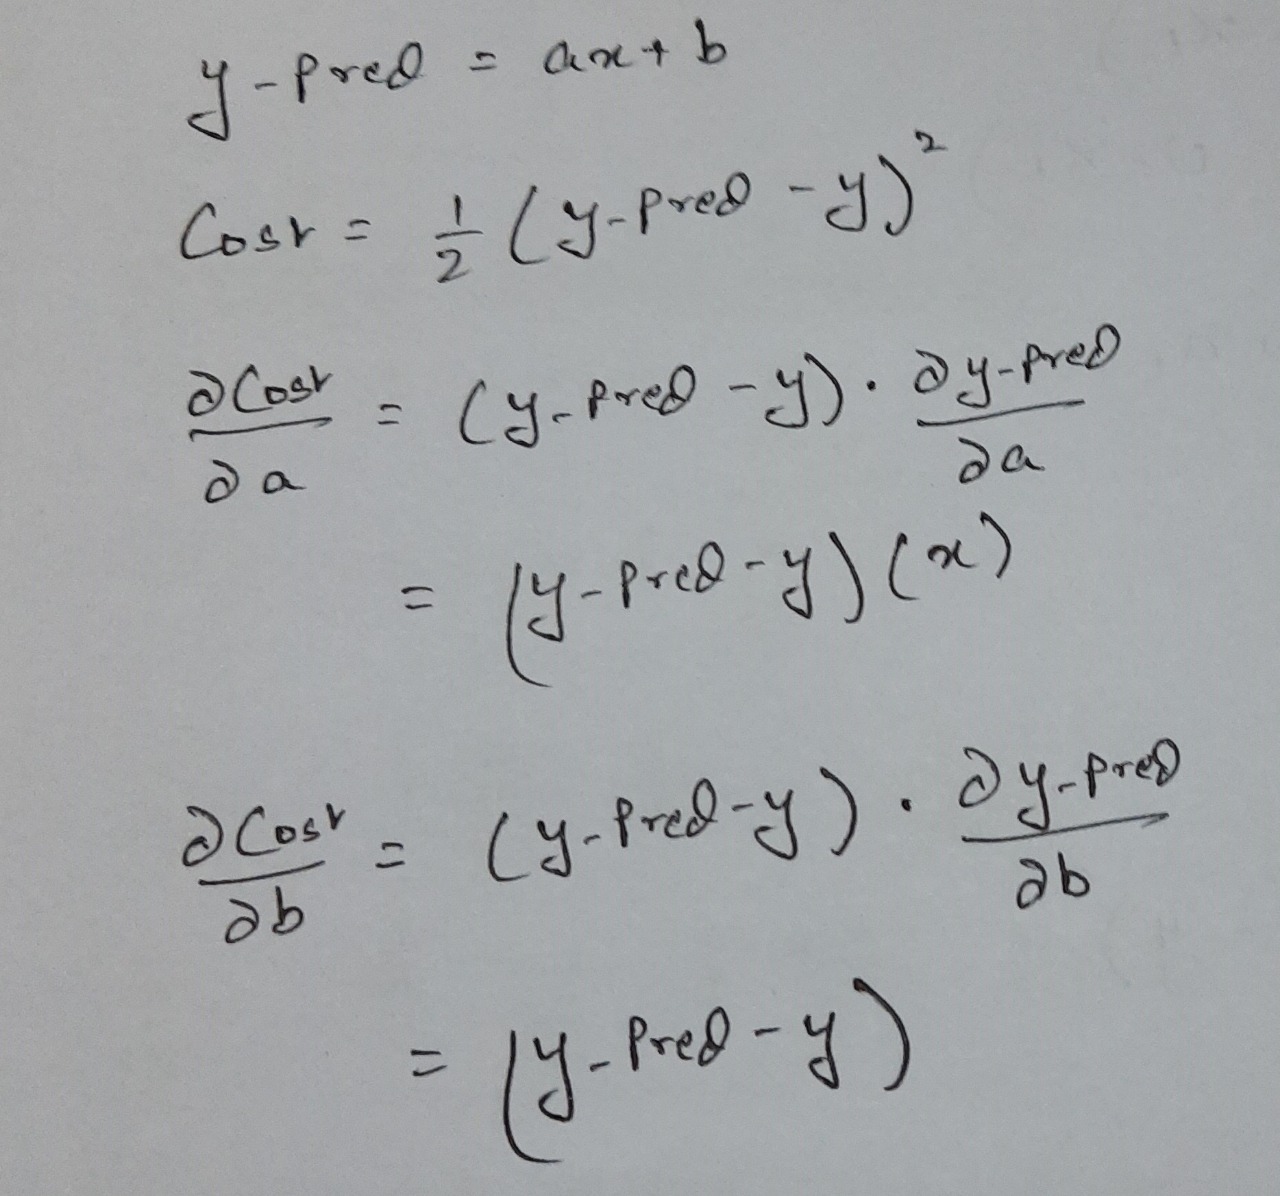 y-pred = ax + b
Cost = 1/2 (y-pred - y)²
∂Cost/∂a = (y-pred - y) · ∂y-pred/∂a
= (y-pred - y)(x)
∂Cost/∂b = (y-pred - y) · ∂y-pred/∂b
= (y-pred - y)